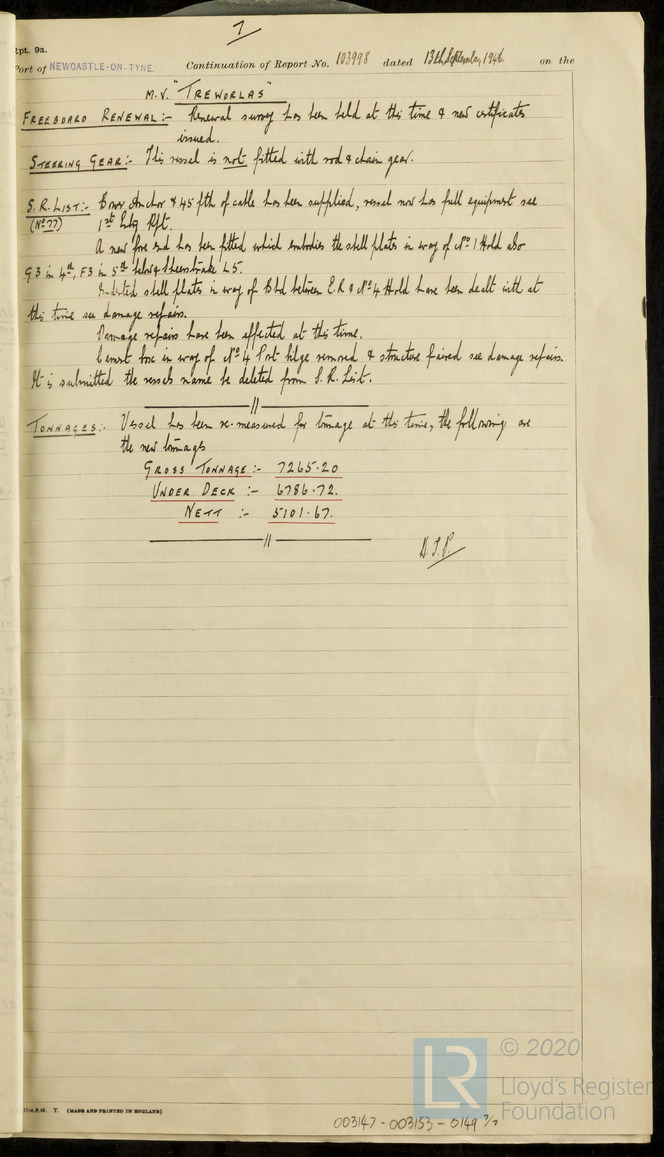 7
Rpt. 9a.
Port of NEWCASTLE-ON-TYNE. Continuation of Report No. 103998 dated 13th September, 1946 on the
M.V. "TREWORLAS"
FREEBOARD RENEWAL:- Renewal survey has been held at this time & new certificates
issued.
STEERING GEAR:- This vessel is not fitted with rod & chain gear.
S.R. LIST:- Bower Anchor & 45 fth of cable has been supplied, vessel now has full equipment see
(No 77) 1st Rpt.
A new fore end has been fitted which embodies the shell plates in way of No 1 Hold also
G3 in 4th, F3 in 5th below Sheerstrake L5.
Indented shell plates in way of Bhd between E.R & No 4 Hold have been dealt with at
this time see damage repairs.
Damage repairs have been effected at this time.
Cement box in way of No 4 Port bilge removed & structure faired see damage repairs.
It is submitted the vessels name be deleted from S.R. List.
TONNAGES:- Vessel has been re-measured for tonnage at this time, the following are
the new tonnages
GROSS TONNAGE:- 7265.20
UNDER DECK :- 6786.72.
NETT :- 5101.67.
T. (MADE AND PRINTED IN ENGLAND)
003147-003153-0149 7/7
LR
© 2020
Lloyd's Register
Foundation